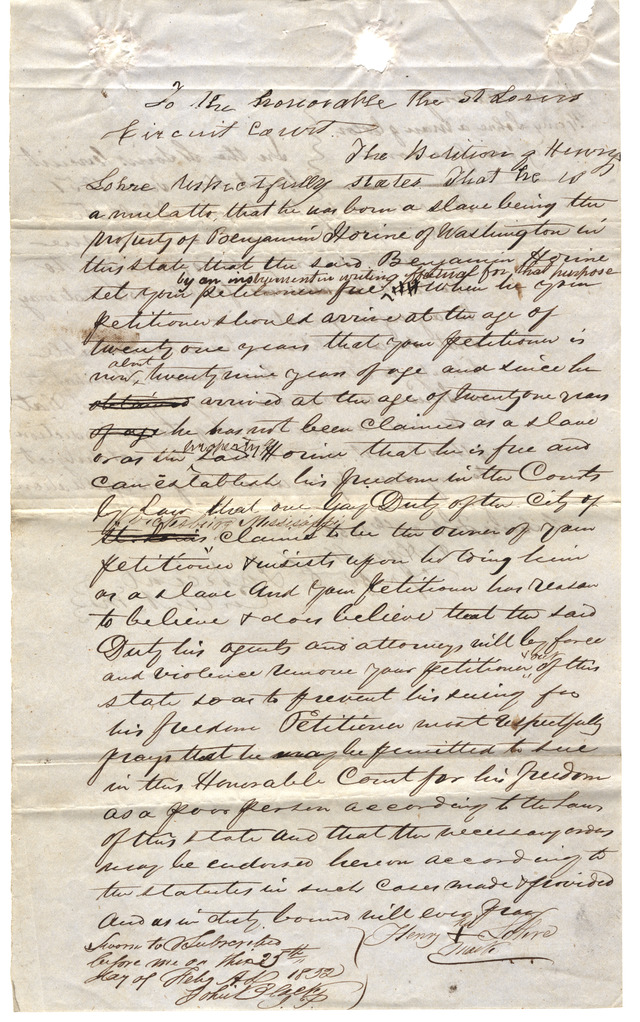 To the honorable the St Louis
Circuit Court.
The Petition of Henry
Lohre respectfully states That he is
a mulatto, that he was born a slave being the
property of Benjamin Horine of Washington in
this state that the said Benjamin Horine
by an instrument in writing for that purpose
set your petitioner free when he your
petitioner should arrive at the age of
twenty one years that your petitioner is
about
now, twenty nine years of age and since he
obtained arrived at the age of twenty one years
of age he has not been claimed as a slave
property of
or as the said Horine that he is free and
can establish his freedom in the Courts
by Law, that one Gay Duty of the City of
Vicksburg Mississippi
St Louis claims to be the owner of your
petitioner & insists upon holding him
as a slave And your Petitioner has reason
to believe & does believe that the said
Duty his agents and attorneys will by force
out
and violence remove your petitioner of this
state so as to prevent his suing for
his freedom Petitioner most respectfully
prays that he may be permitted to sue
in this Honorable Court for his freedom
as a poor person according to the Laws
of this state And that the necessary orders
may be endorsed hereon according to
the statutes in such cases made & provided
And as in duty bound will ever pray
Henry X Lohre
mark
Sworn to & Subscribed
before me on this 25th
day of Feby A.D. 1852
John